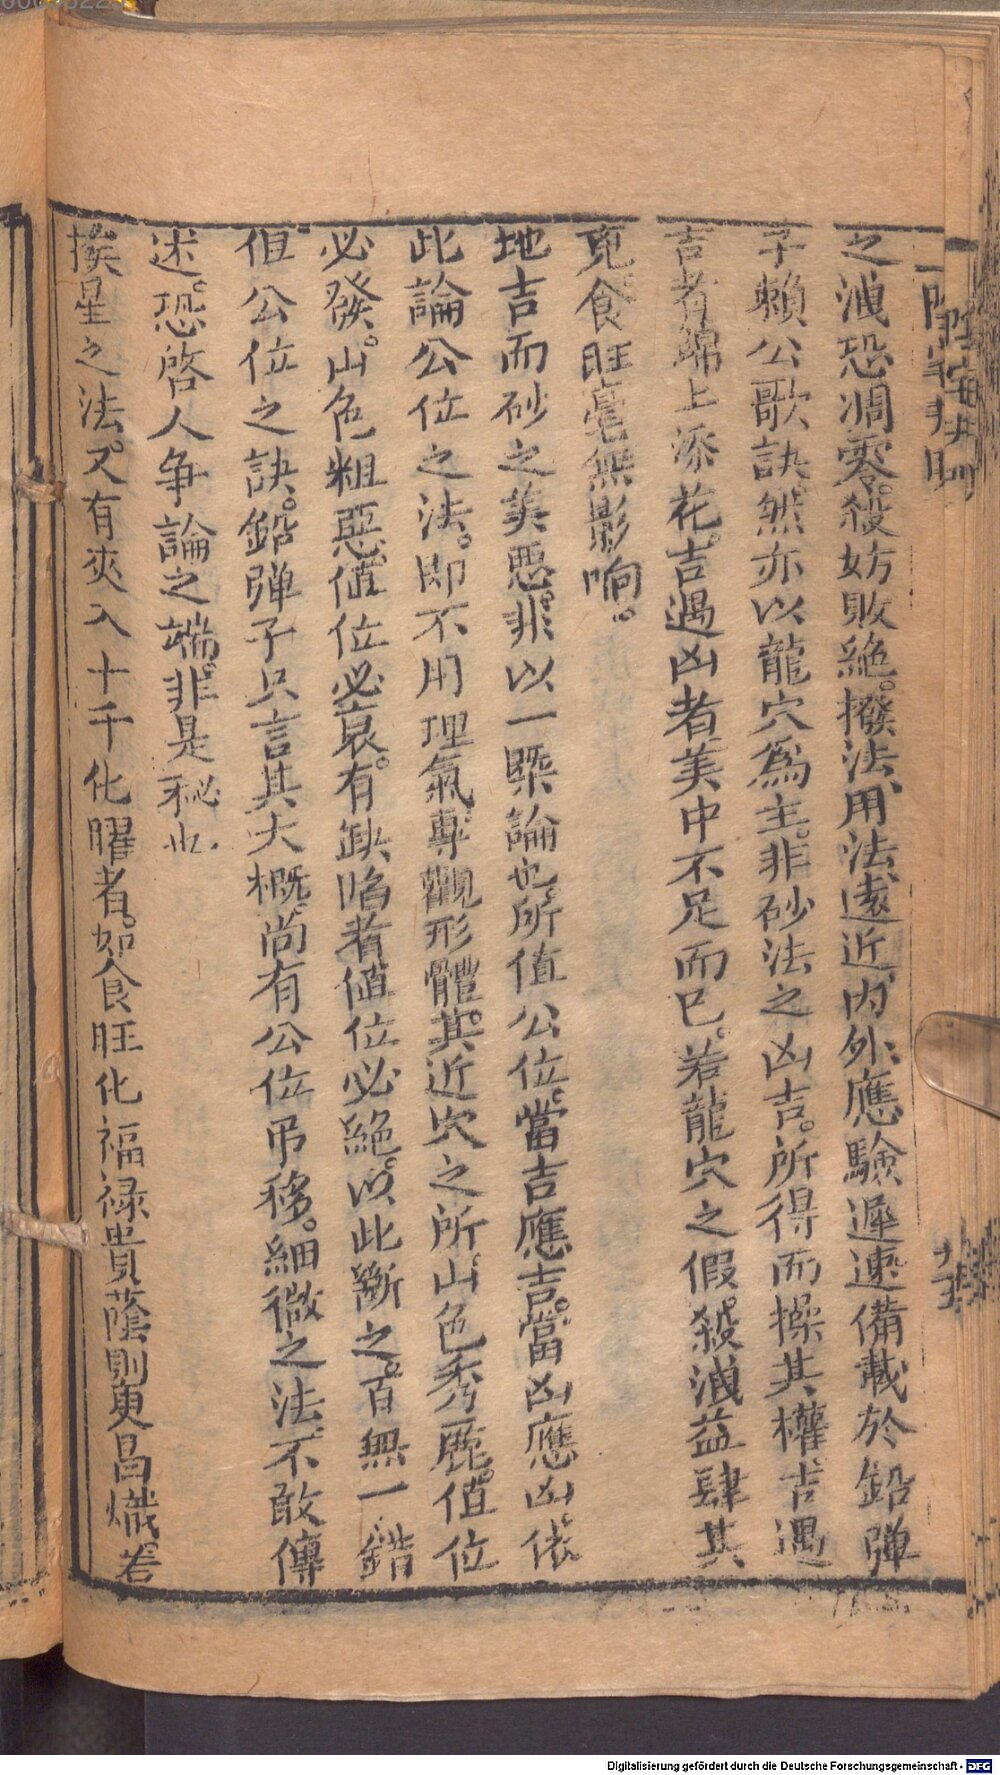 之洩恐凋零。殺妨敗絶。撥法、用法、遠近、内外、應驗遲速備載於鉛弾
子賴公歌訣然亦以龍穴為主。非砂法之凶吉。所得而操其權。吉遇
吉者錦上添花。吉遇凶者美中不足而已。若龍穴之假。殺洩益肆其
克。食旺毫無影响。
地吉而砂之美惡。非以一槩論也。所值公位。當吉應吉。當凶應凶。依
此論公位之法。即不用理氣專觀形體。其近穴之所。山色秀麗。值位
必發。山色粗惡。值位必衰。有缺陷者值位必絶。以此斷之。百無一錯
但公位之訣。鉛弾子只言其大概。尚有公位吊移。細微之法。不敢傳
述。恐啓人争論之端。非是秘也。
挨星之法。又有夾入十干化曜者。如食旺化福禄貴蔭則更昌熾。若